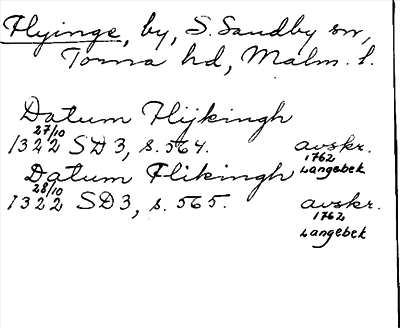 Flyinge, by, S. Sandby sn,
Torna hd, Malm. l.
Datum Flijkingh
27/10
1322 SD3, s. 564. avskr.
1762
Langebek
Datum Flikingh
28/10
1322 SD3, s. 565. avskr.
1762
Langebek